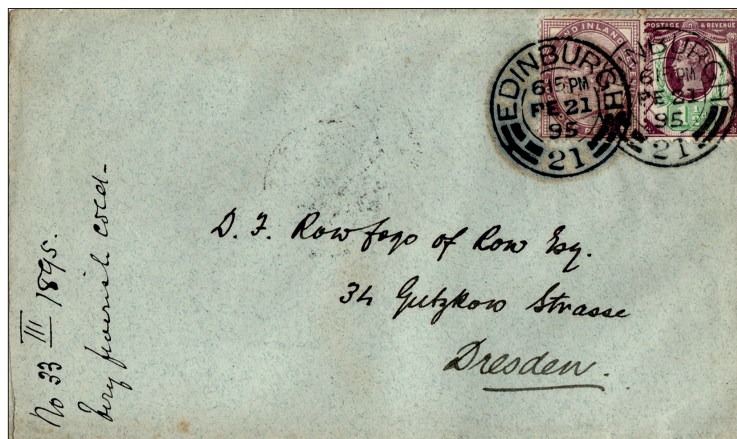 POSTAGE & REVENUE
EDINBURGH
615 PM
FE 21
95
21
NBURGH
615 PM
FE 21
95
21
D. F. Row fogo of Row Esq.
34 Gutzkow Strasse
Dresden.
No 33 III 1895.
Very feverish cold-